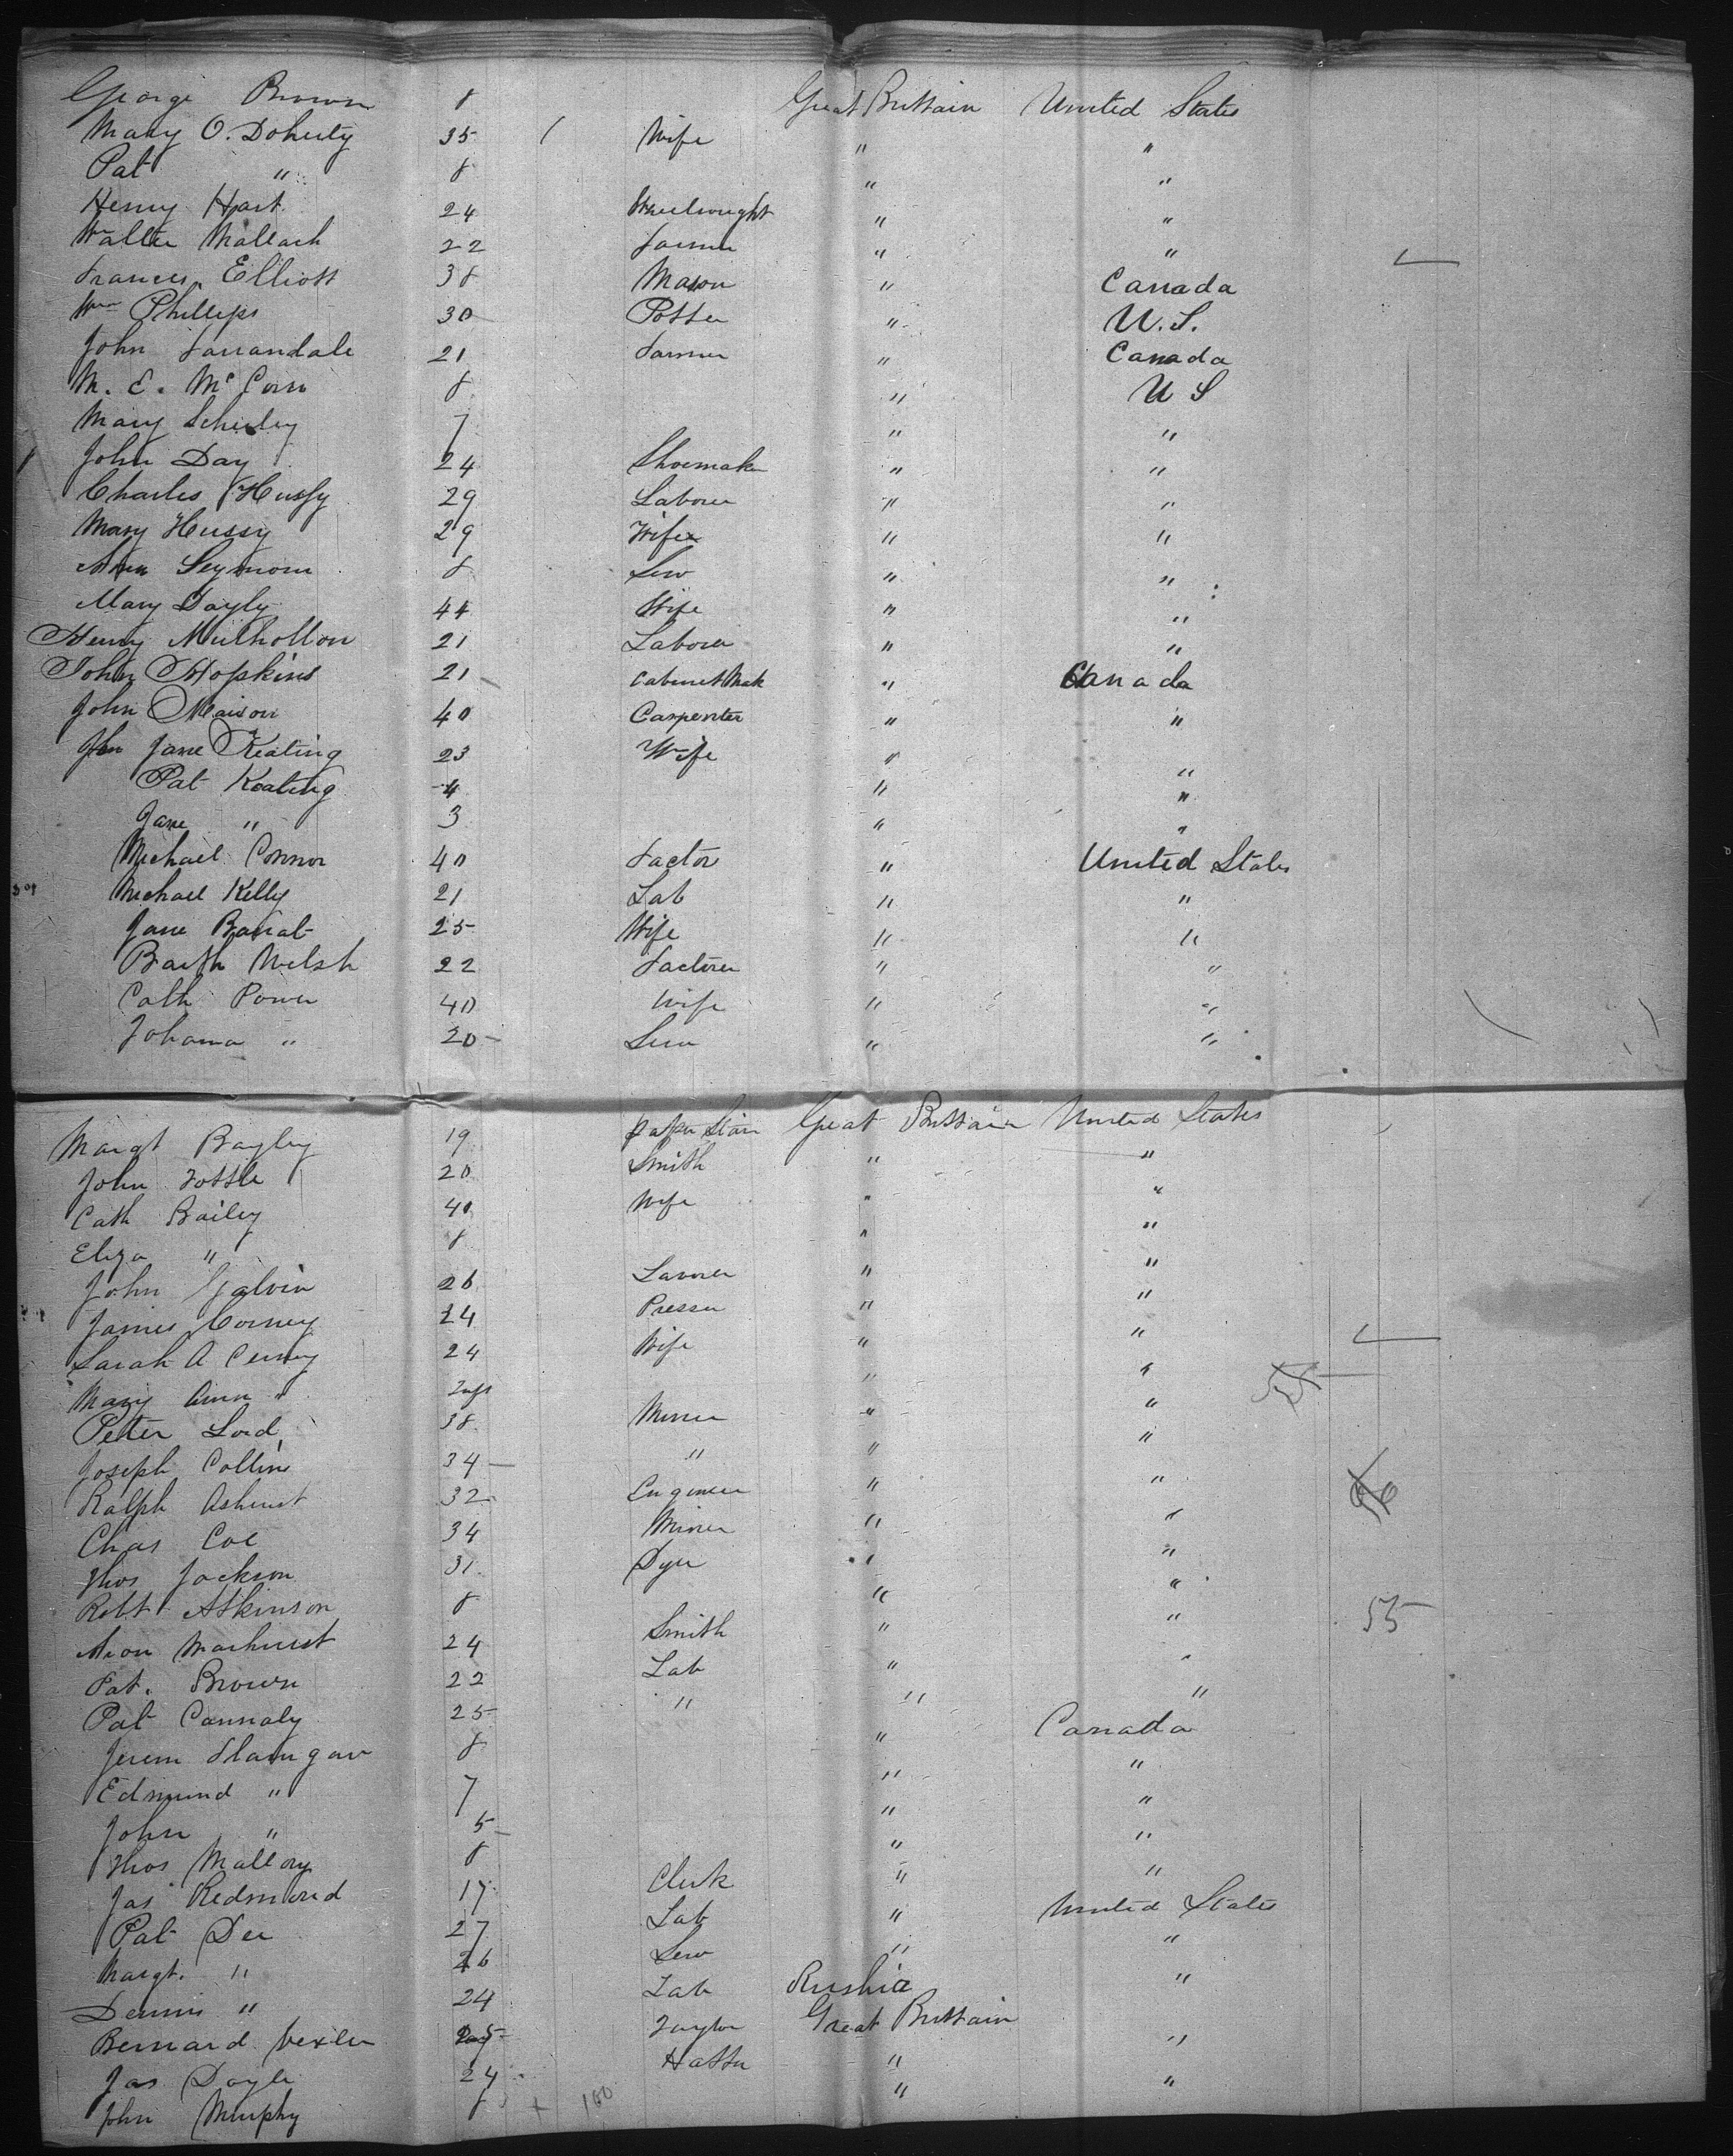 George Brown 8 Great Brittain United States
Mary O. Doherty 35 Wife " "
Pat " 8 " "
Henry Hart 24 Wheelwright " "
Walter Wallach 22 Farmer " "
Frances Elliott 38 Mason " Canada
Wm Phillips 30 Potter " U.S.
John Farrandale 21 Farmer " Canada
M. E. McCorn 8 " U S
Mary 7 " "
John Day 24 Shoemaker " "
Charles Hussy 29 Laborer " "
Mary Hussy 29 Wife " "
Ann Seymour 8 Serv " "
Mary Dayly 44 Wife " "
Henry Mulhollon 21 Laborer " "
John Hopkins 21 Cabinet Mak " Canada
John Maison 40 Carpenter " "
Jane Keating 23 Wife " "
Pat Keating 4 " "
Jane " 3 " "
Michael Connor 40 Factor " United States
Michael Kelly 21 Lab " "
Jane Barrat 25 Wife " "
Barth Welsh 22 Factorer " "
Cath Power 40 Wife " "
Johanna " 20 Serv " "
Margt Bagley 19 Great Brittain United States
John Tottle 20 Smith " "
Cath Bailey 40 Wife " "
Eliza " 8 " "
John Galvin 26 Laborer " "
James Corney 24 Presser " "
Sarah A Cerney 24 Wife " "
Mary Ann " " " 55
Peter Lord 38 Miner " "
Joseph Collins 34 " " "
Ralph Ashurst 32 Engineer " "
Chas Coe 34 Miner " "
Thos Jackson 31 Dyer " "
Robt Atkinson 8 " "
24 Smith " " 55
Pat. Brown 22 Lab " "
Pat Cannaly 25 " " "
Jerem 8 " Canada
Edmund " 7 " "
John " 5 " "
Thos Mallory 8 " "
Jas Redmond 17 Clerk " "
Pat Dee 27 Lab " United States
Margt. " 26 Serv " "
Dennis " 24 Lab "
Bernard Vexler Taylor Rushia "
Jas Doyle 24 Hatter Great Brittain "
John Murphy 8 " "
+ 100